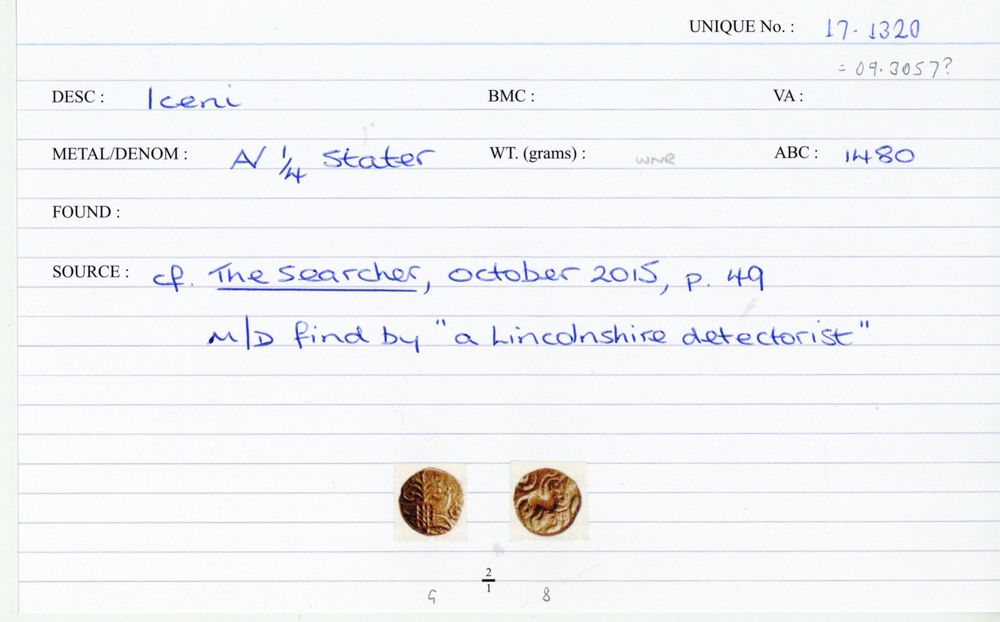 UNIQUE No. : 17. 1320
= 09.3057?
DESC : Iceni BMC : VA :
METAL/DENOM : A/ 1/4 stater WT. (grams) : WNR ABC : 1480
FOUND :
SOURCE : cf. The Searcher, October 2015, p. 49
M/D find by "a Lincolnshire detectorist"
2
1
8